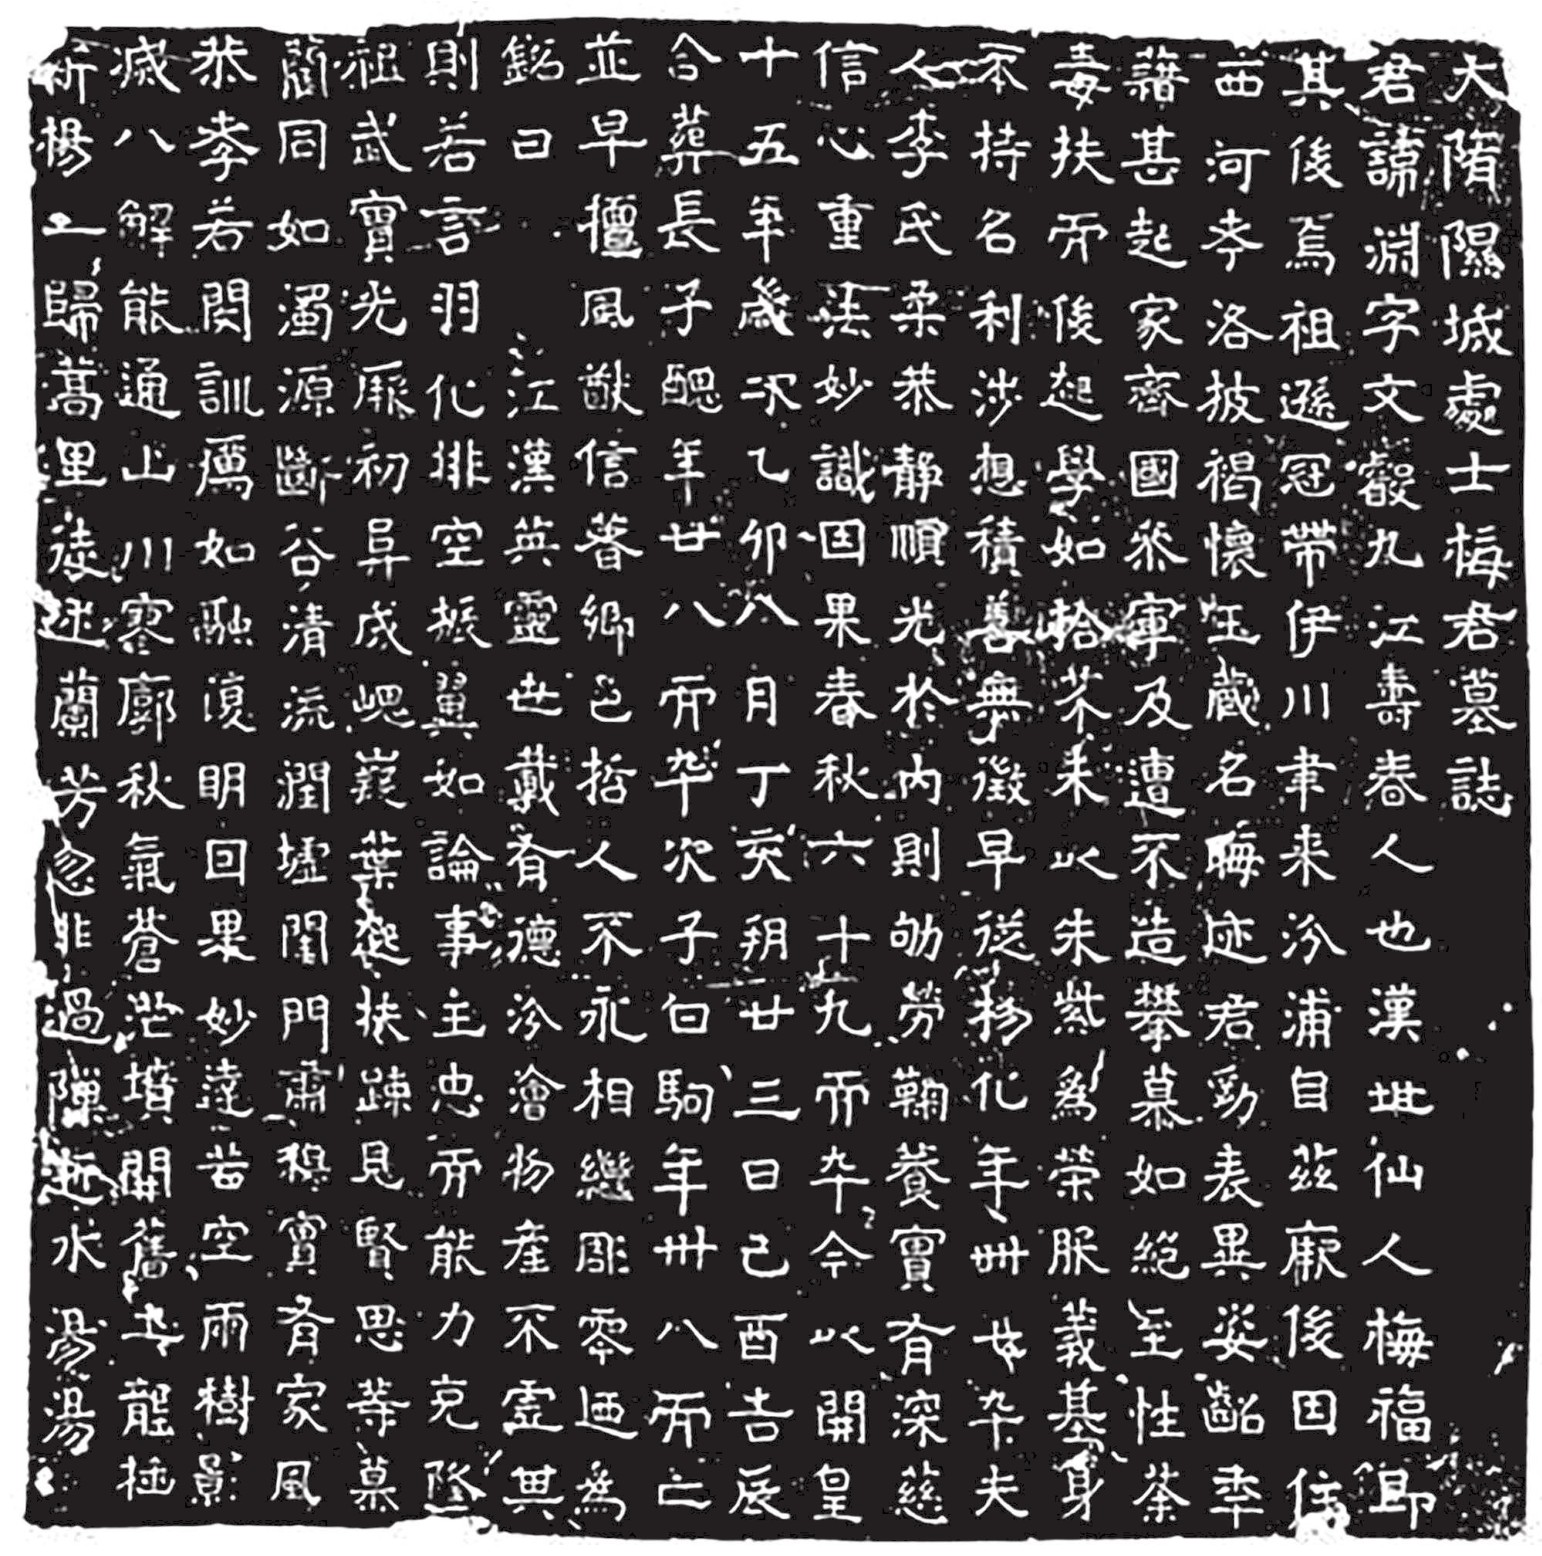 大隋隰城處士梅君墓誌
君諱淵字文叡九江壽春人也漢世仙人梅福即
其後焉祖遜冠帶伊川聿来汾浦自茲厥後因住
西河考洛披褐懷玉蔵名晦迹君幼表異姿齠年
藉甚起家齊國叅軍及遭不造攀慕如絕至性荼
毒扶而後起學如拾芥未以朱紫為榮服義基身
不持名利涉想積善無徵早從物化年卌卒夫
人李氏柔恭静順光於內則劬勞鞠養實有深慈
信心重法妙識因果春秋六十九而卒今以開皇
十五年歲次乙卯八月丁亥朔廿三日己酉吉辰
合葬長子醜年廿八而卒次子白駒年卌八而亡
並早擅風猷信著鄉邑哲人不永相繼彫零迺為
銘曰 江漢英靈世載有德汾澮物產不虛其
則若言羽化排空振翼如論事主忠而能力克隆
祖武實光厥初成嶷葉起扶疎見賢思等慕
藺同如濁源斷谷清流潤墟閨門肅穆實有家風
恭孝若閔訓厲如融復明因果妙達苦空雨樹影
滅八解能通山川寥廓秋氣蒼茫墳開舊龍
新楊一歸蒿里徒述蘭芳忽非過隙逝水湯湯